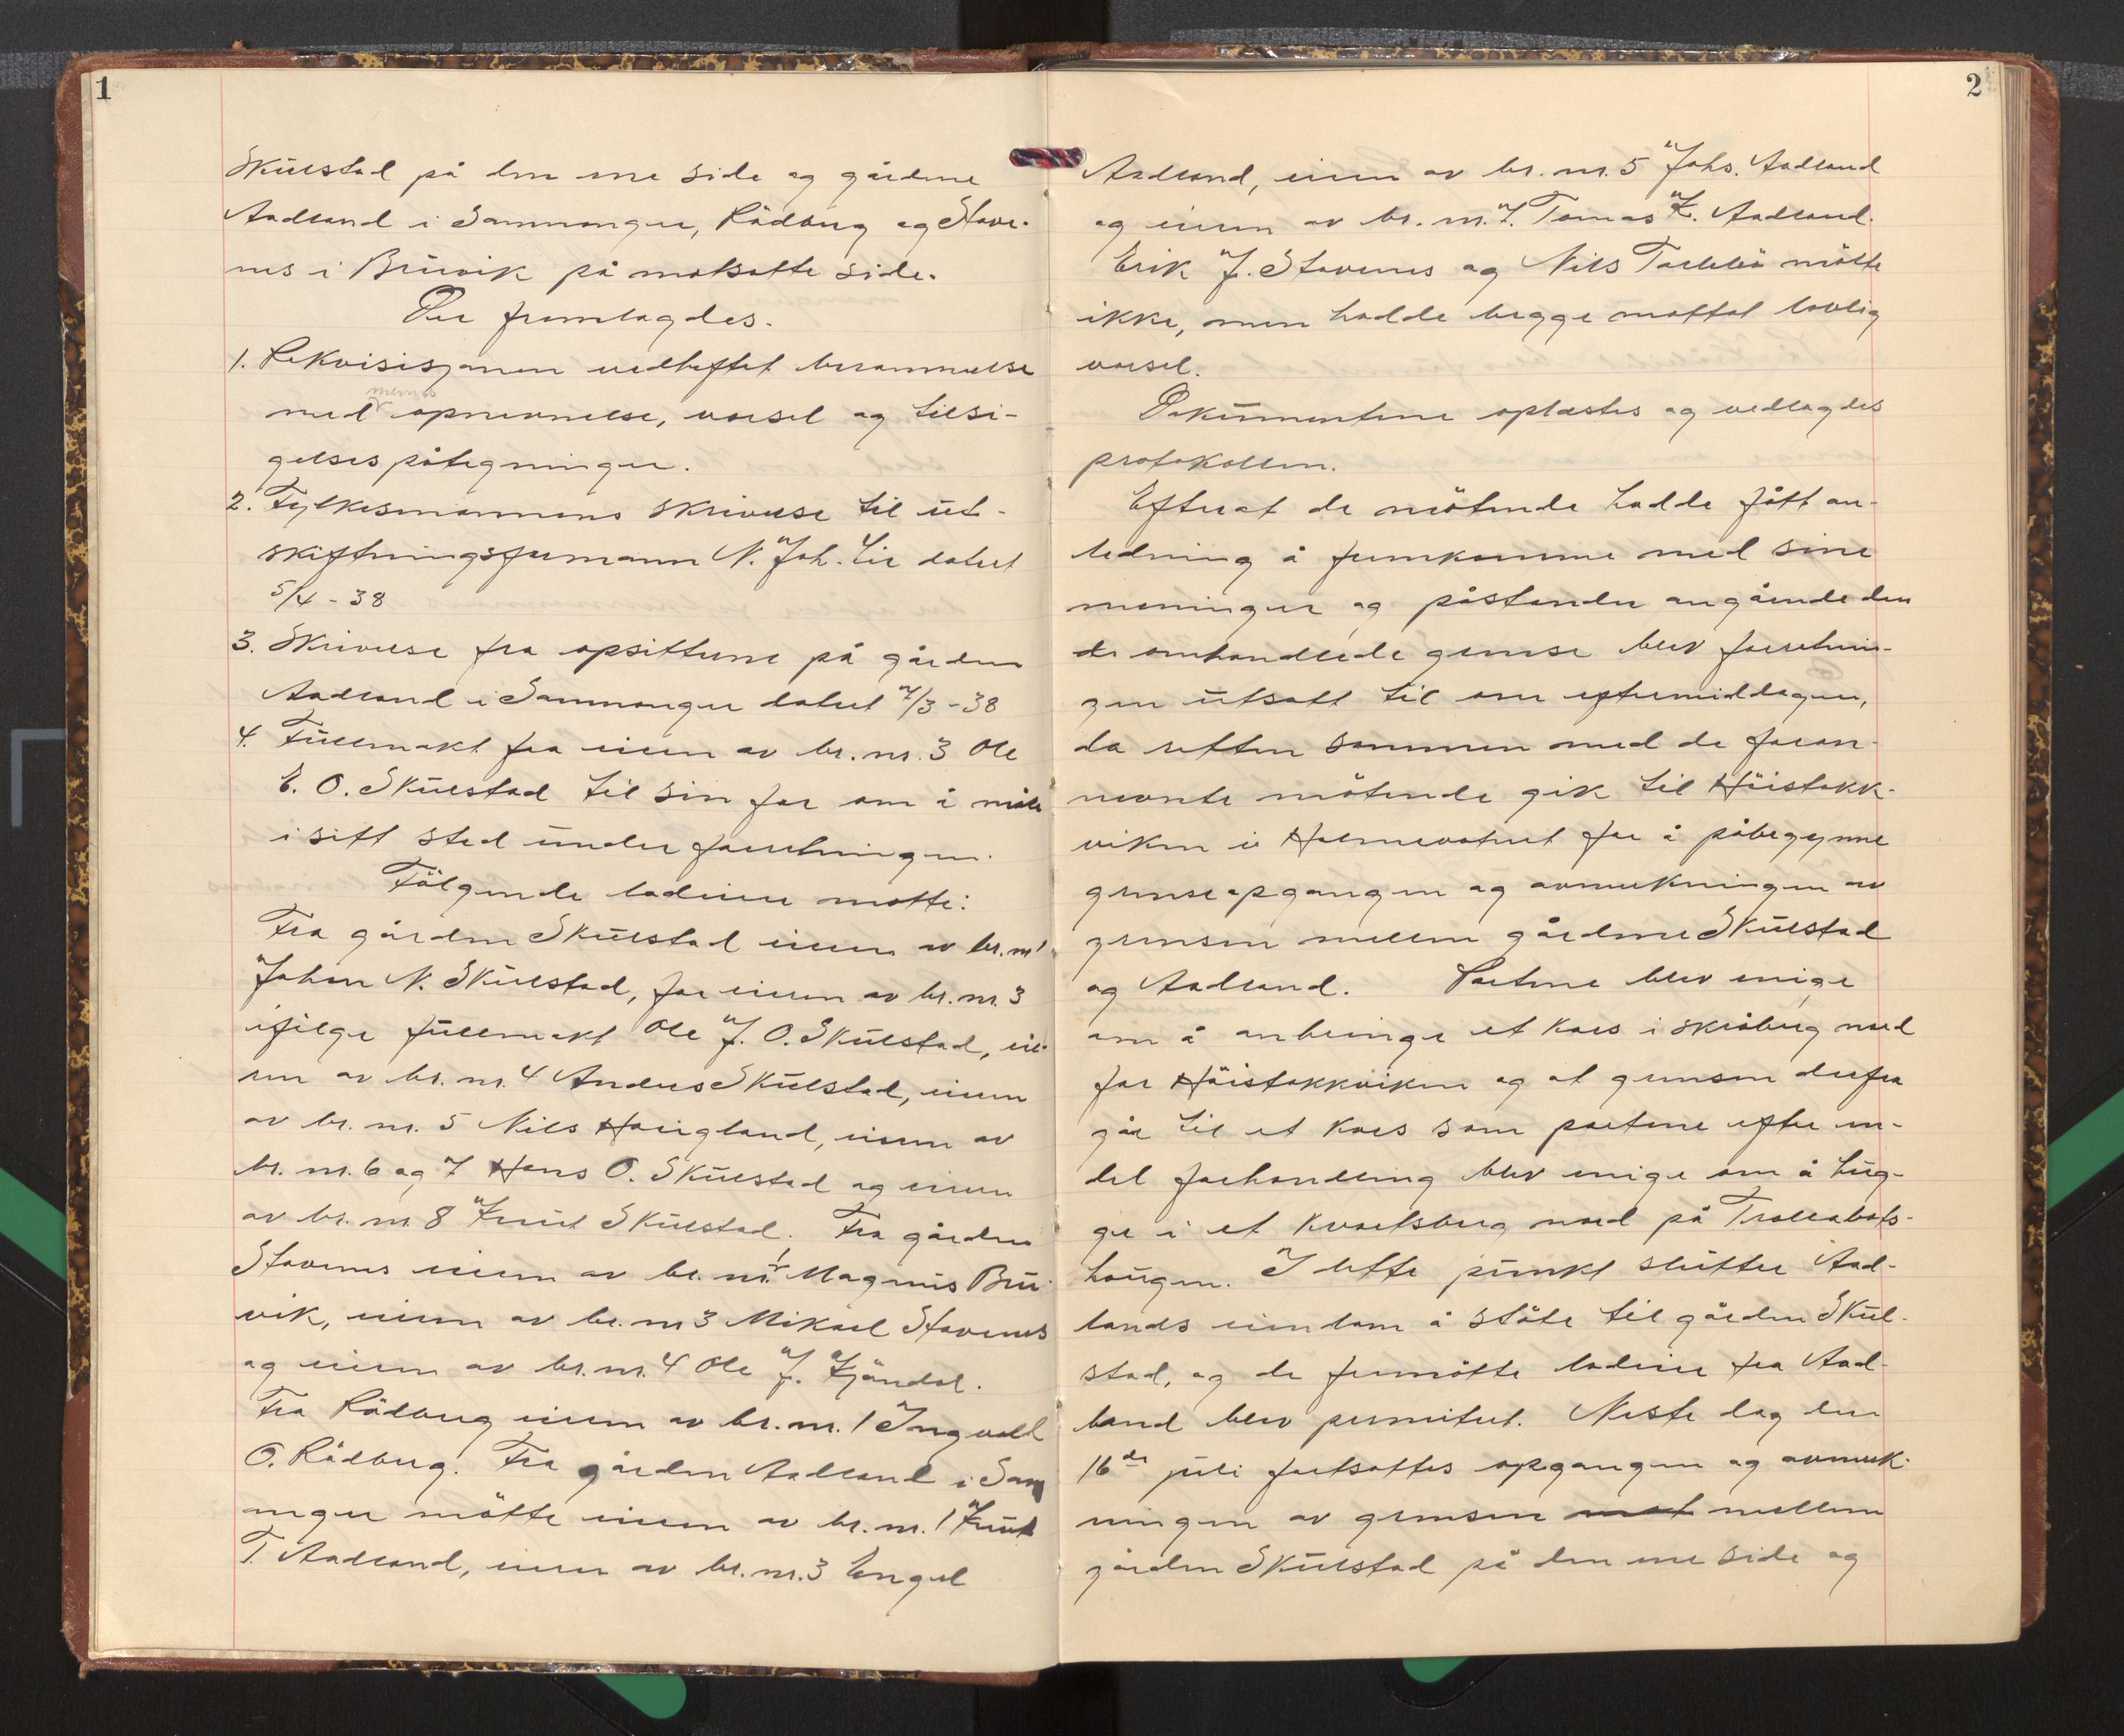 1
Skulstad på den ene side og gårdene
Aadland i Samnanger, Rödberg og Stave-
nes i Bruvik på motsatte side.
Der fremlagdes.
1. Rekvisisjonen vedheftet berammelse
med menns opnevnelse, varsel og tilsi-
gelsespåtegninger.
2. Fylkesmannens skrivelse til ut-
skiftningsformann N. Joh. Lie datert
5/4 - 38
3. Skrivelse fra opsitterne på gården
Aadland i Samnanger datert 7/3 - 38
4. Fullmakt fra eieren av br. nr. 3 Ole
E. O. Skulstad til sin far om å möte
i sitt sted under forretningen.
Fölgende lodeiere motte:
Fra gården Skulstad eieren av br. nr 1
Johan N. Skulstad, for eieren av br. nr. 3
ifölge fullmakt Ole J. O. Skulstad, eie-
ren av br. nr. 4 Anders Skulstad, eieren
av br. nr. 5 Nils Haugland, eieren av
br. nr. 6 og 7 Hans O. Skulstad og eieren
av br. nr. 8 Knut Skulstad. Fra gården
Stavenes eieren av br. nr. 1 Magnus Bru-
vik, eieren av br. nr 3 Mikael Stavenes
og eieren av br. nr. 4 Ole J. Fjöndal.
Fra Rödberg eieren av br. nr. 1 Ingvald
O. Rödberg. Fra gården Aadland i Sam
nanger mötte eieren av br. nr. 1 Knut
T. Aadland, eieren av br. nr. 3 Engel
2
Aadland, eieren av br. nr. 5 Johs. Aadland
og eieren av br. nr. 7. Tomas K. Aadland.
Erik J. Stavenes og Nils mötte
ikke, men hadde begge mottat lovlig
varsel.
Dokumentene oplæstes og vedlagdes
protokollen.
Efterat de mötende hadde fått an-
ledning å fremkomme med sine
meninger og påstander angående den
de omhandlede grense blev forretnin-
gen utsatt til om eftermiddagen,
da retten sammen med de foran-
nevnte mötende gik til Höistakk-
viken i Holmevatnet for å påbegynne
grenseopgangen og avmerkningen av
grensen mellem gårdene Skulstad
og Aadland. Partene blev enige
om å anbringe et kors i skråberg ned
for Höistakkviken og at grensen derfra
går til et kors som partene efter en-
del forhandling blev enige om å hug-
ge i et kvartsberg nord på Trollabots-
haugen. I dette punkt slutter Aad-
lands eiendom å stöte til gården Skul-
stad, og de fremmötte lodeiere fra Aad-
land blev permitert. Neste dag den
16de juli fortsattes opgangen og avmerk-
ningen av grensen mot mellem
gården Skulstad på den ene side og